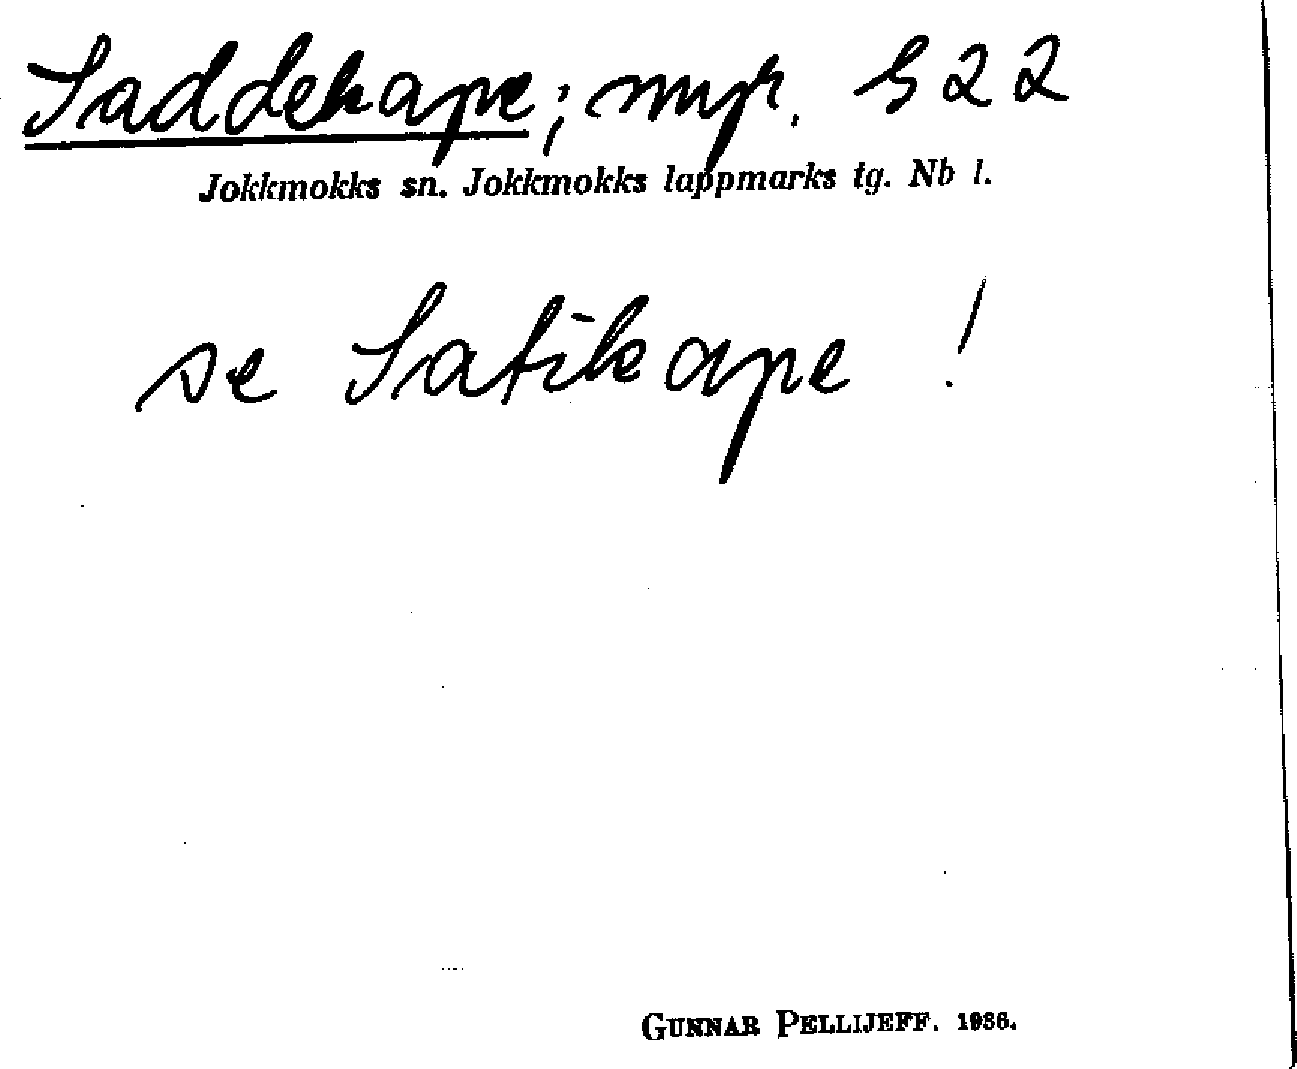 Saddekape; myr. S22
Jokkmokks sn. Jokkmokks lappmarks tg. Nb l.
se Satikape!
GUNNAR PELLIJEFF. 1936.